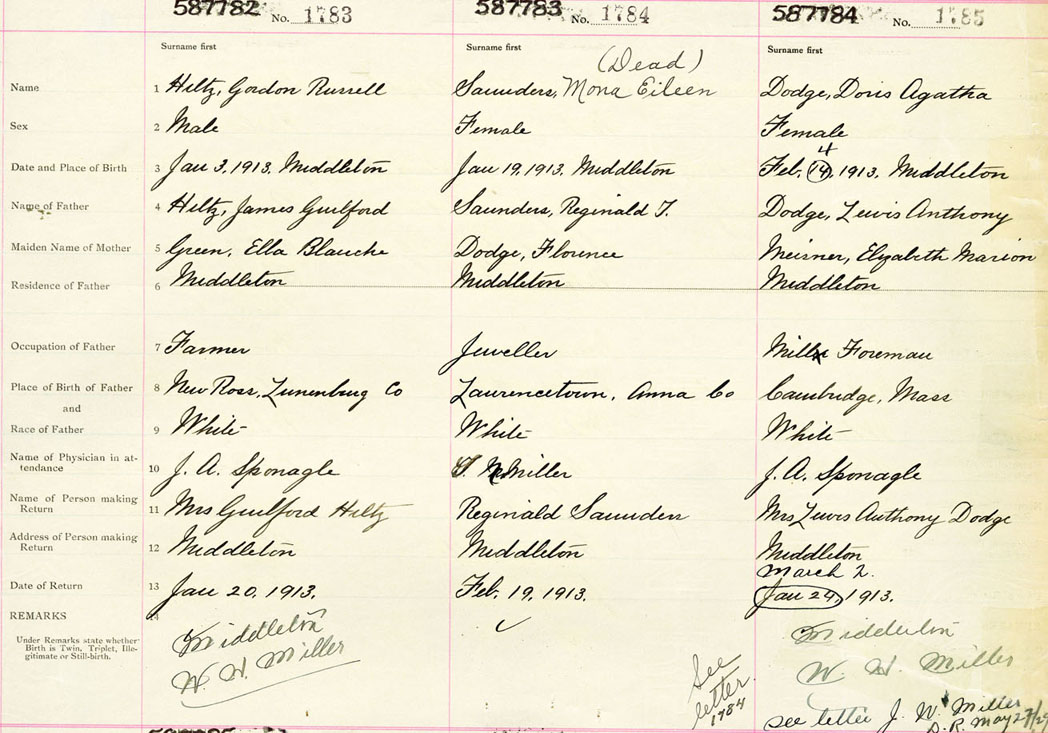 587782 No. 1783 587783 No. 1784 587784 No. 1785
Surname first Surname first Surname first
(Dead)
Name 1 Hiltz, Gordon Russell Saunders, Mona Eileen Dodge, Doris Agatha
Sex 2 Male Female Female
4
Date and Place of Birth 3 Jan 3, 1913. Middleton Jan 19, 1913. Middleton Feb. 14, 1913. Middleton
Name of Father 4 Hiltz, James Guilford Saunders, Reginald F. Dodge, Lewis Anthony
Maiden Name of Mother 5 Green, Ella Blanche Dodge, Florence Meisner, Elizabeth Marion
Residence of Father 6 Middleton Middleton Middleton
Occupation of Father 7 Farmer Jeweller Mill Foreman
Place of Birth of Father 8 New Ross, Lunenburg Co Lawrencetown, Anna Co Cambridge, Mass
and
Race of Father 9 White White White
Name of Physician in at-
tendance 10 J. A. Sponagle Miller J. A. Sponagle
Name of Person making
Return 11 Mrs Guilford Hiltz Reginald Saunders Mrs Lewis Anthony Dodge
Address of Person making
Return 12 Middleton Middleton Middleton
March 2.
Date of Return 13 Jan 20, 1913. Feb. 19, 1913. Jan 24, 1913.
REMARKS 14
Under Remarks state whether
Birth is Twin, Triplet, Ille-
gitimate or Still-birth.
Middleton
W. H. Miller
See
letter
1784
Middleton
W. H. Miller
see letter J. W. Miller
D. R. May 27/29